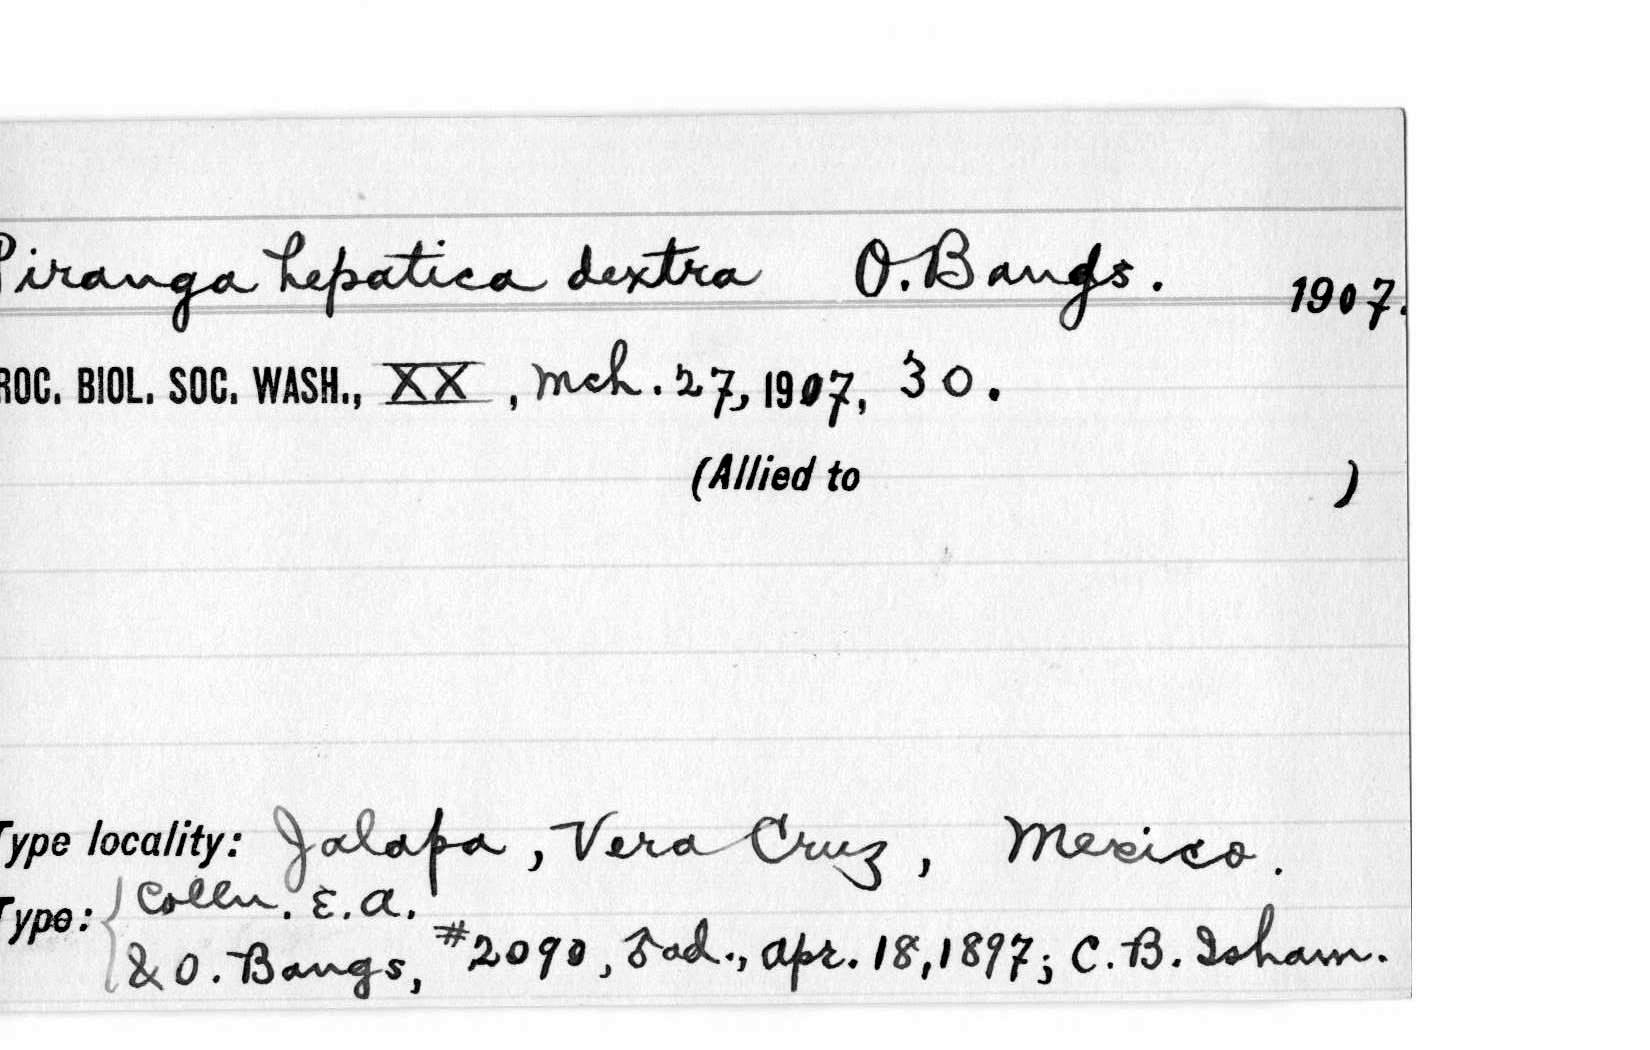 Piranga hepatica dextra O. Bangs. 1907.
ROC. BIOL. SOC. WASH., XX, Mch. 27, 1907, 30.
(Allied to )
Type locality: Jalapa, Vera Cruz, Mexico.
Type: Colln. E. A.
& O. Bangs, #2090, ♂ ad., Apr. 18, 1897; C. B. Isham.